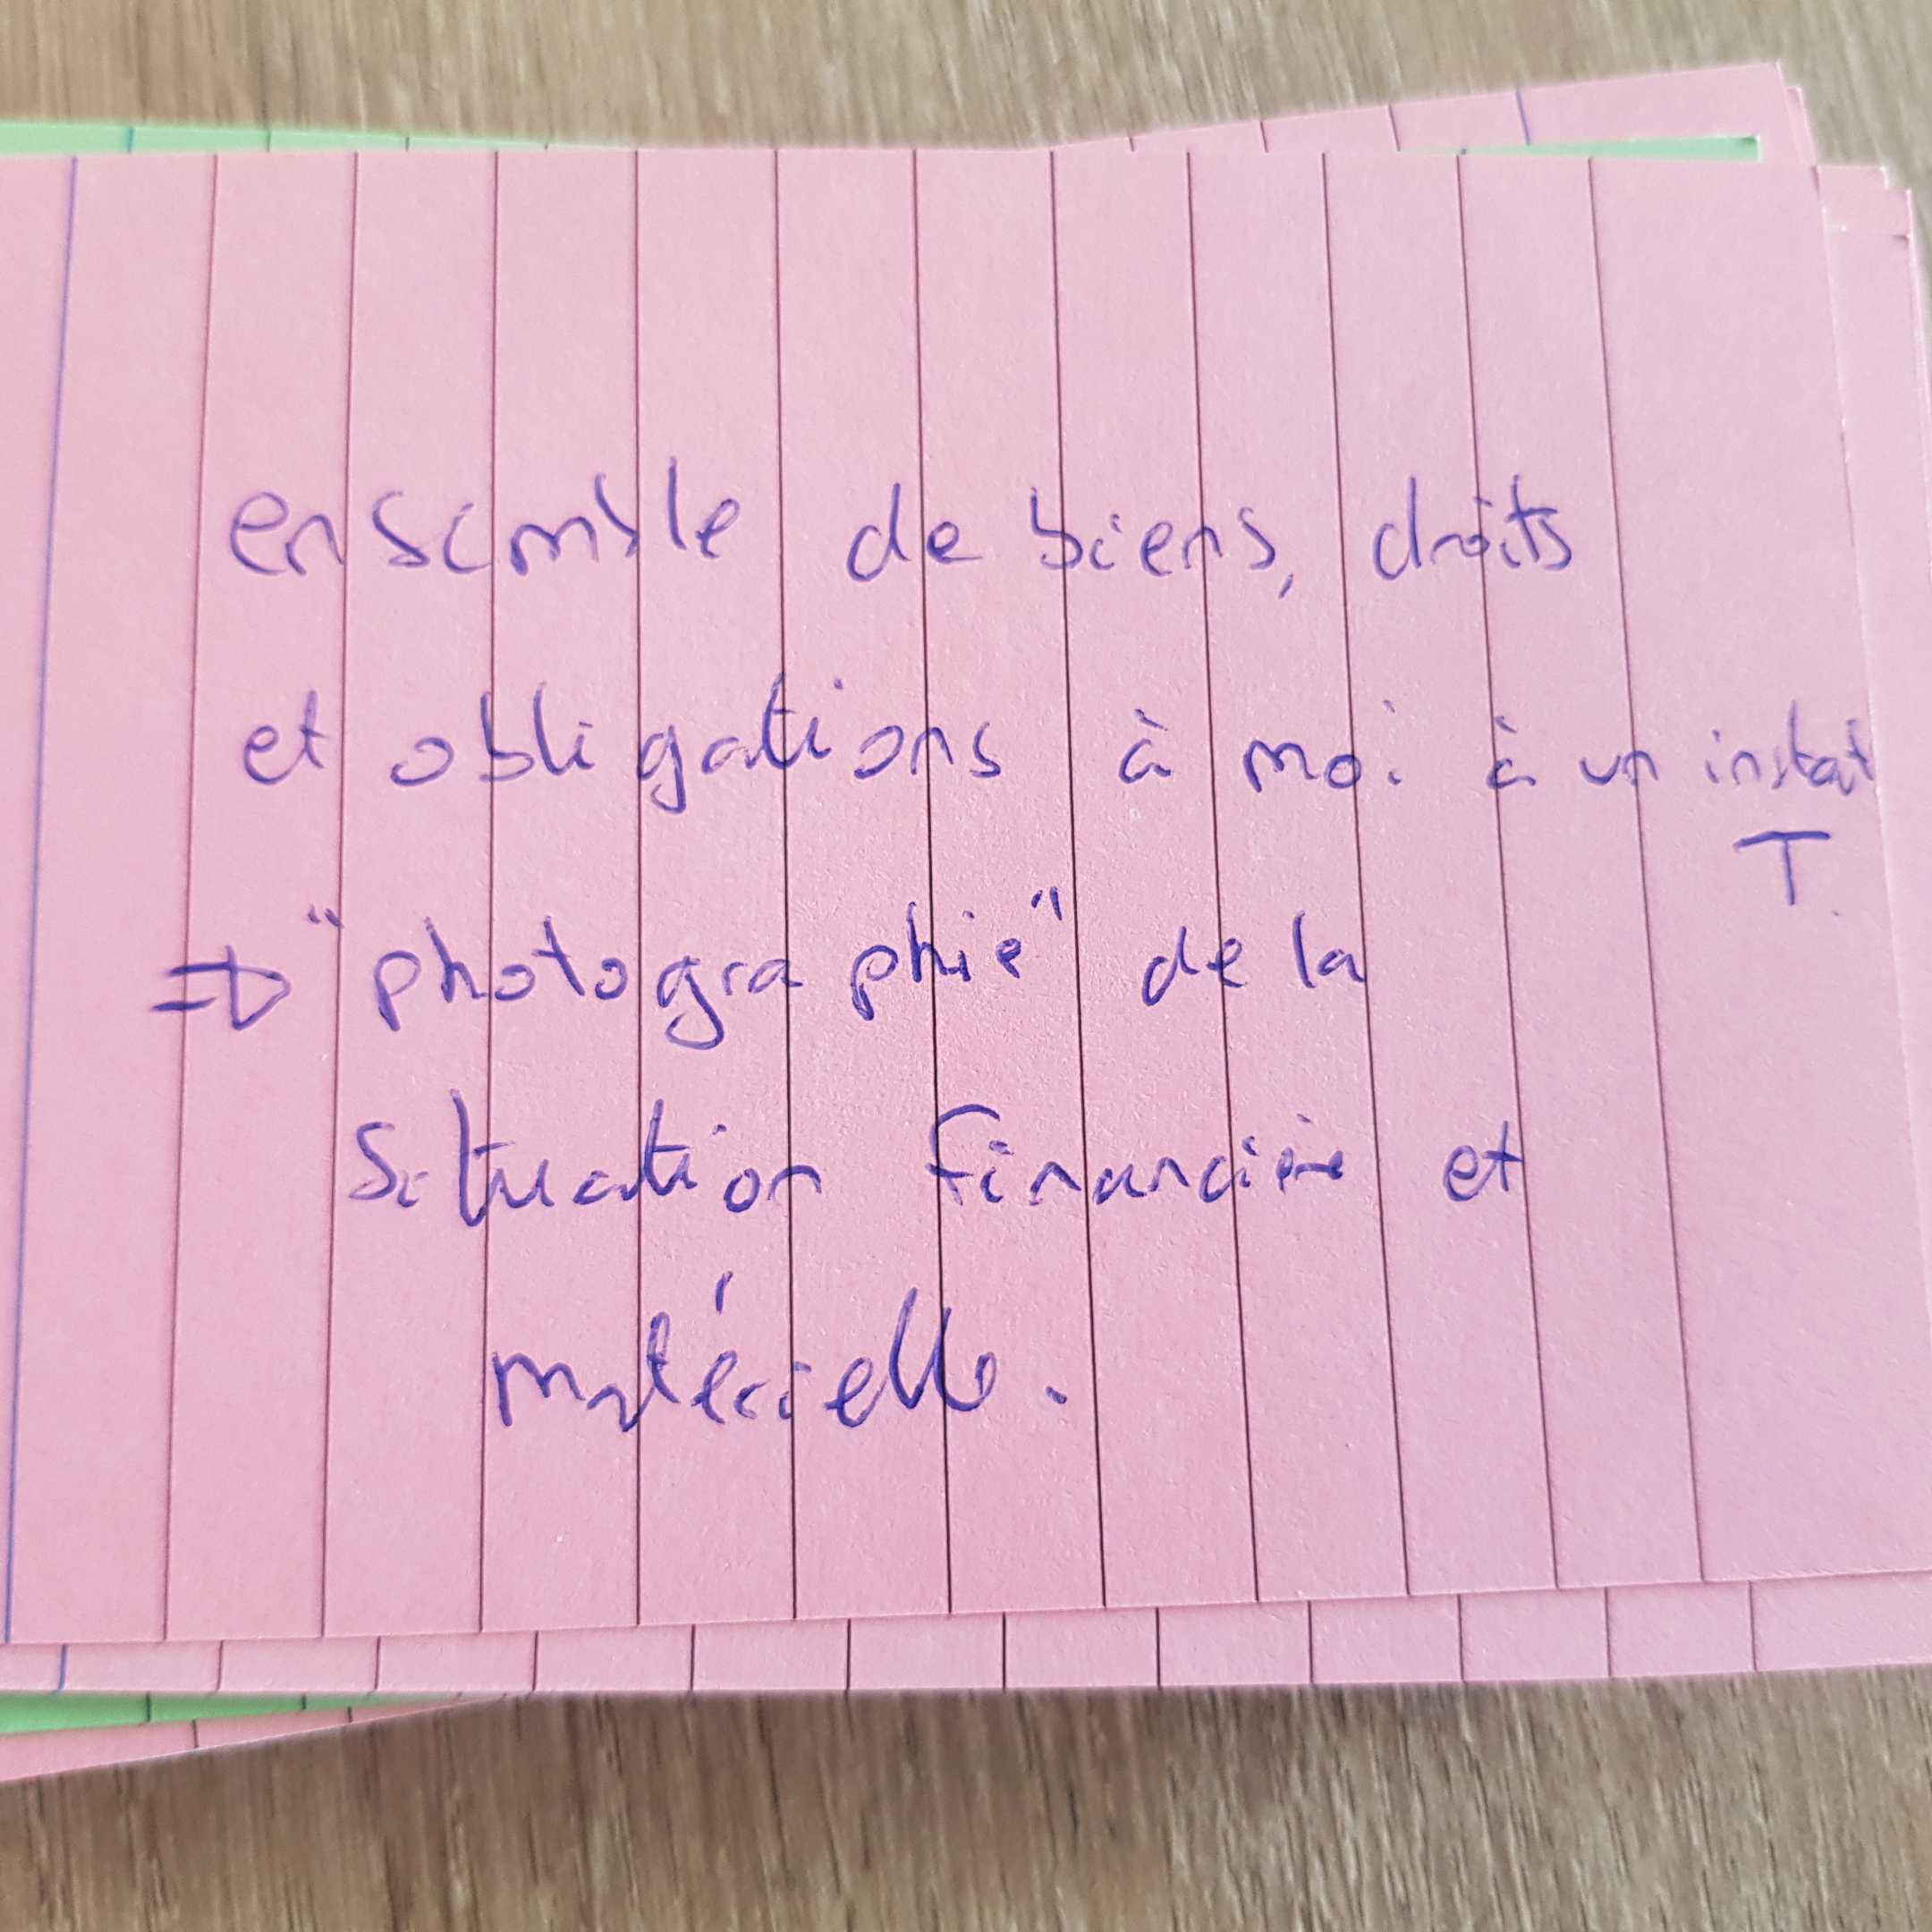 ensemble de biens, droits
et obligations à moi à un instat
T.
⇒ "photographie" de la
situation financière et
matérielle.